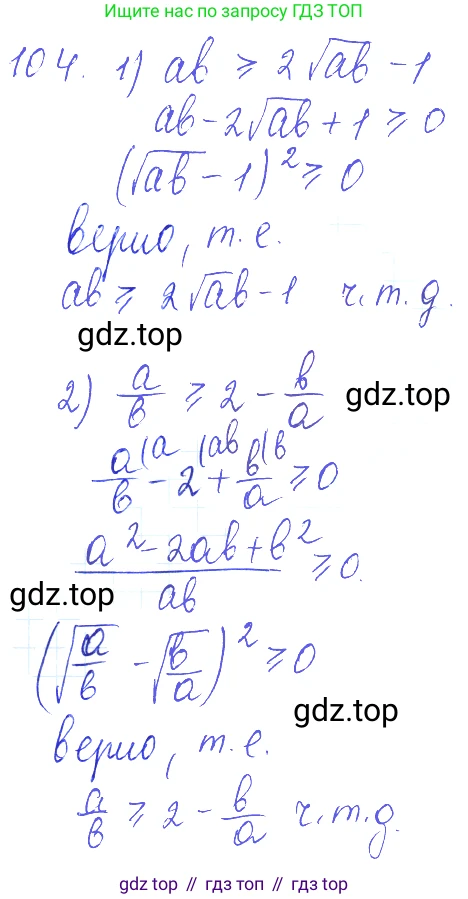 Ищите нас по запросу ГДЗ ТОП
104. 1) ab ≥ 2√ab - 1
ab - 2√ab + 1 ≥ 0
(√ab - 1)² ≥ 0
верно, т.е.
ab ≥ 2√ab - 1 ч.т.д.
gdz.top
2) a/b ≥ 2 - b/a
gdz.top
a/b (a - 2 (ab + b/a (b ≥ 0
(a² - 2ab + b²)/ab ≥ 0.
gdz.top
(√a/b - √b/a)² ≥ 0
gdz.top
верно, т.е.
a/b ≥ 2 - b/a ч.т.д.
gdz.top // гдз топ // гдз.топ